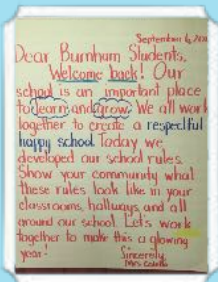 September 6, 
Dear Burnham Students,
Welcome back! Our
school is an important place
to learn and grow. We all work
together to create a respectful
happy school. Today we
developed our school rules.
Show your community what
these rules look like in your
classrooms, hallways and all
around our school. Let's work
together to make this a glowing
year!
Sincerely,
Mrs.